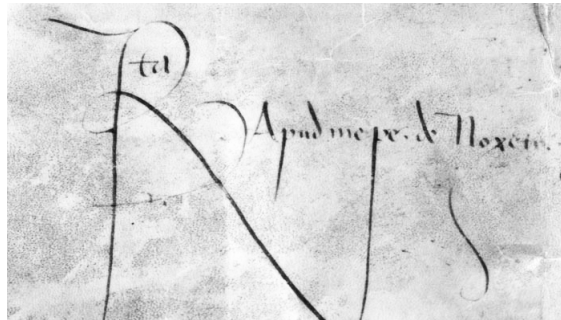 Rta
Apud me pe. de Noxeto.